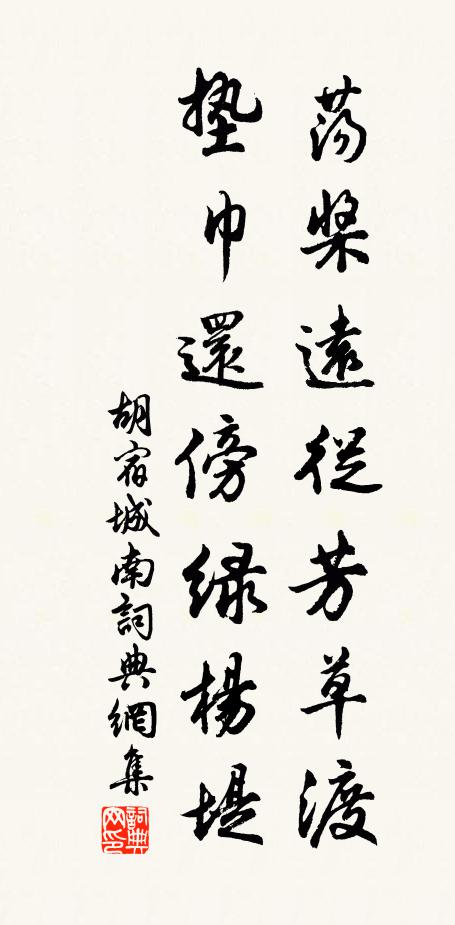 蕩槳遠從芳草渡
墊巾還傍綠楊堤
胡宿城南詞典網集
詞典网印